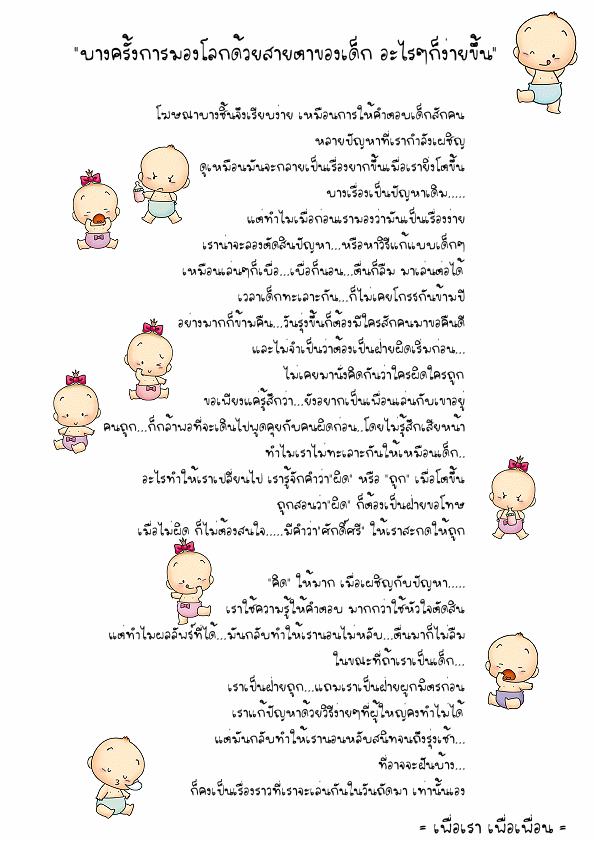 "บางครั้งการมองโลกด้วยสายตาของเด็ก อะไรๆก็ง่ายขึ้น"
โฆษณาบางชิ้นจึงเรียบง่าย เหมือนการให้คำตอบเด็กสักคน
หลายปัญหาที่เรากำลังเผชิญ
ดูเหมือนมันจะกลายเป็นเรื่องยากขึ้นเมื่อเรายิ่งโตขึ้น
บางเรื่องเป็นปัญหาเดิม.....
แต่ทำไมเมื่อก่อนเรามองว่ามันเป็นเรื่องง่าย
เราน่าจะลองตัดสินปัญหา...หรือหาวิธีแก้แบบเด็กๆ
เหมือนเล่นๆก็เบื่อ...เบื่อก็นอน...ตื่นก็ลืม มาเล่นต่อได้
เวลาเด็กทะเลาะกัน...ก็ไม่เคยโกรธกันข้ามปี
อย่างมากก็ข้ามคืน...วันรุ่งขึ้นก็ต้องมีใครสักคนมาขอคืนดี
และไม่จำเป็นว่าต้องเป็นฝ่ายผิดเริ่มก่อน...
ไม่เคยมานั่งคิดกันว่าใครผิดใครถูก
ขอเพียงแค่รู้สึกว่า...ยังอยากเป็นเพื่อนเล่นกับเขาอยู่
คนถูก...ก็กล้าพอที่จะเดินไปพูดคุยกับคนผิดก่อน..โดยไม่รู้สึกเสียหน้า
ทำไมเราไม่ทะเลาะกันให้เหมือนเด็ก..
อะไรทำให้เราเปลี่ยนไป เรารู้จักคำว่า"ผิด" หรือ "ถูก" เมื่อโตขึ้น
ถูกสอนว่า"ผิด" ก็ต้องเป็นฝ่ายขอโทษ
เมื่อไม่ผิด ก็ไม่ต้องสนใจ.....มีคำว่า'ศักดิ์ศรี' ให้เราสะกดให้ถูก
"คิด" ให้มาก เมื่อเผชิญกับปัญหา.....
เราใช้ความรู้ให้คำตอบ มากกว่าใช้หัวใจตัดสิน
แต่ทำไมผลลัพธ์ที่ได้...มันกลับทำให้เรานอนไม่หลับ...ตื่นมาก็ไม่ลืม
ในขณะที่ถ้าเราเป็นเด็ก...
เราเป็นฝ่ายถูก...แถมเราเป็นฝ่ายผูกมิตรก่อน
เราแก้ปัญหาด้วยวิธีง่ายๆที่ผู้ใหญ่คงทำไม่ได้
แต่มันกลับทำให้เรานอนหลับสนิทจนถึงรุ่งเช้า...
ที่อาจจะฝันบ้าง...
ก็คงเป็นเรื่องราวที่เราจะเล่นกันในวันถัดมา เท่านั้นเอง
= เพื่อเรา เพื่อเพื่อน =